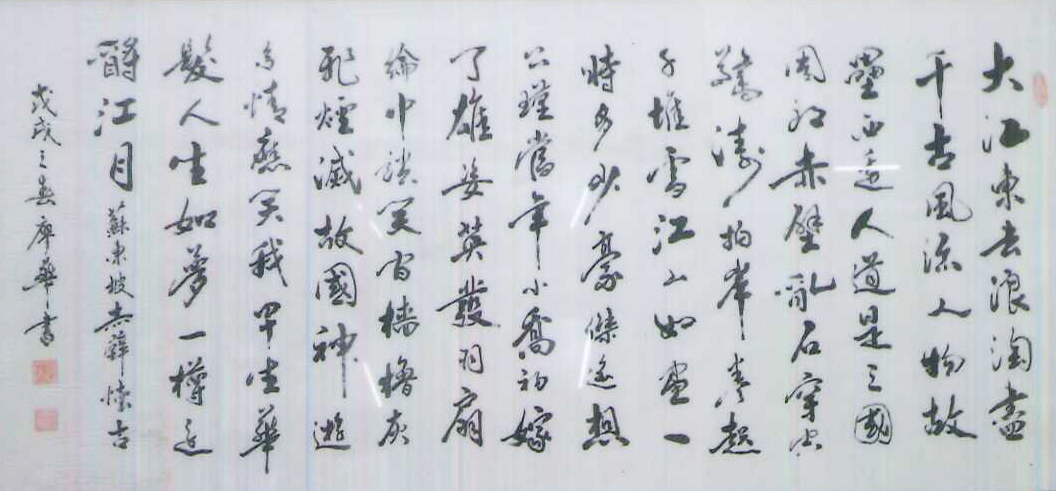 大江東去浪淘盡
千古風流人物故
壘西邊人道是三國
周郎赤壁亂石穿空
驚濤拍岸卷起
千堆雪江山如畫一
時多少豪傑遙想
公瑾當年小喬初嫁
了雄姿英發羽扇
綸巾談笑間檣櫓灰
飛煙滅故國神遊
多情應笑我早生華
髮人生如夢一樽還
酹江月 蘇東坡赤壁懷古
戊戌之春廖華書